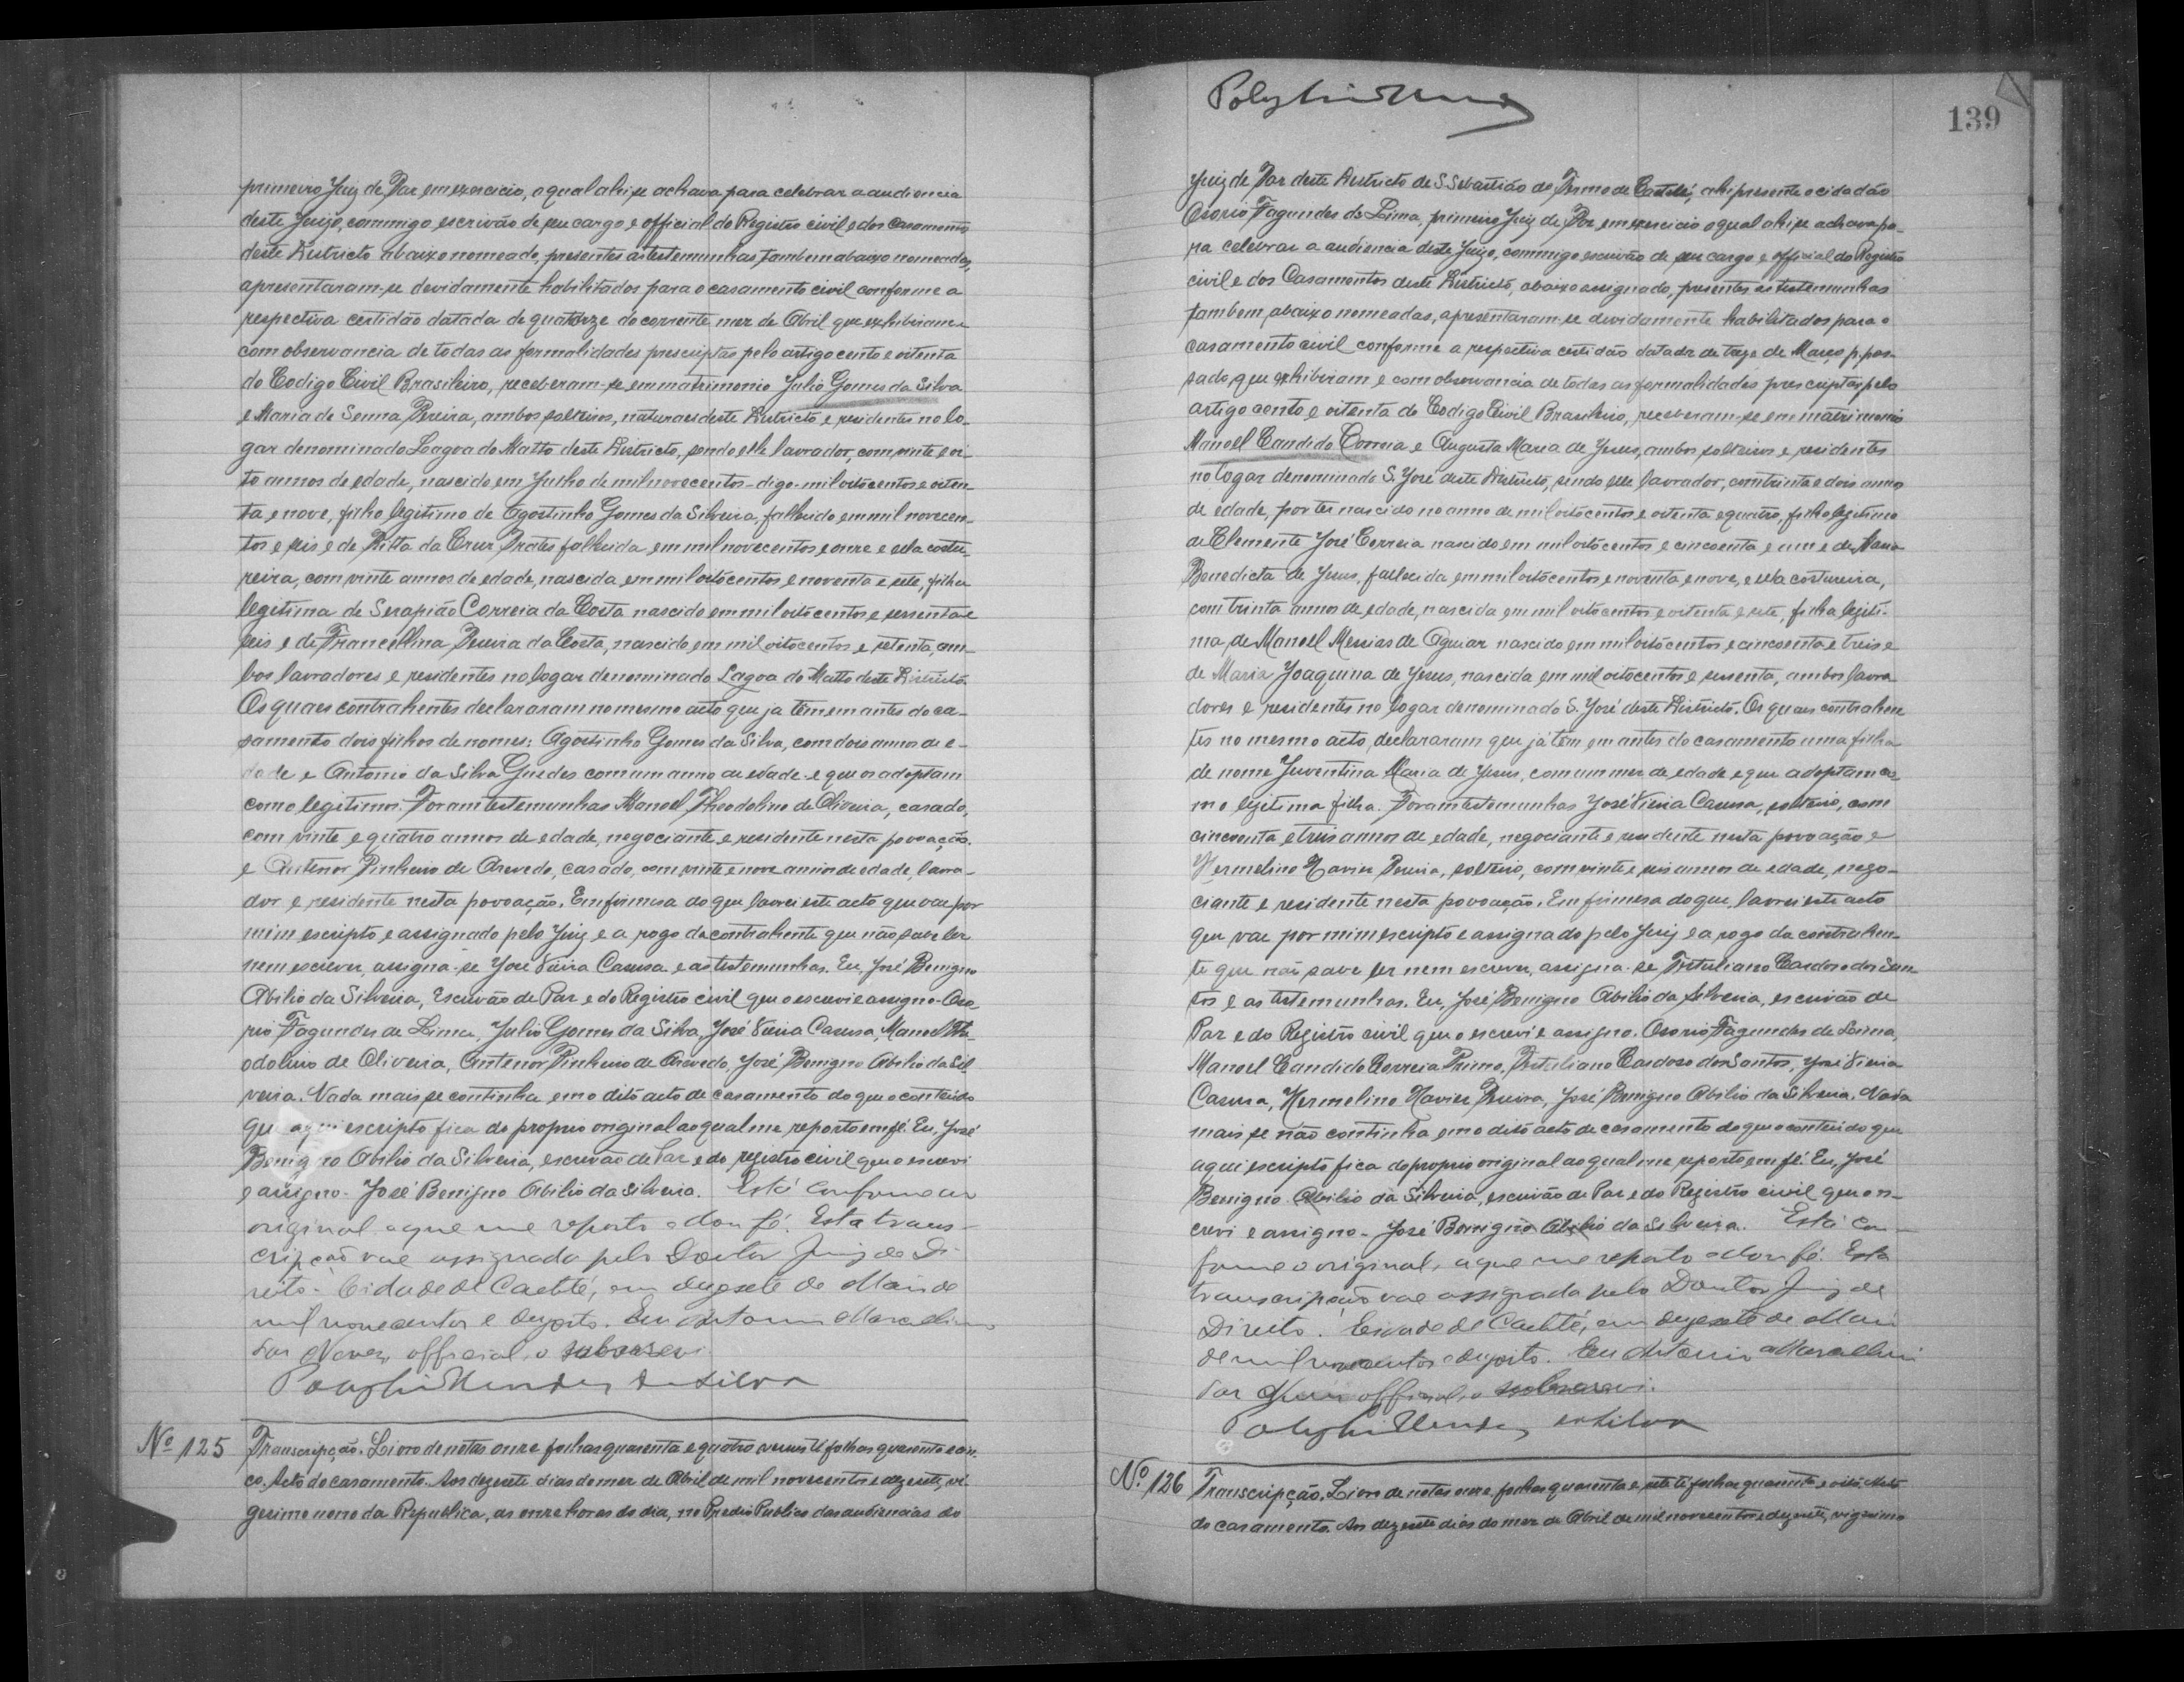 primeiro Juiz de Paz em exercicio, o qual ahi se achava para celebrar a audiencia
deste Juizo, commigo escrivão de seu cargo e official do Registro civil e dos casamentos
deste Districto abaixo nomeado, presentes as testemunhas, tambem abaixo nomeadas,
apresentaram-se devidamente habilitados para o casamento civil conforme a
respectiva certidão datada de quatorze do corrente mez de Abril que exhibiram e
com observancia de todas as formalidades prescriptas pelo artigo cento e oitenta
do Codigo Civil Brasileiro, receberam-se em matrimonio Julio Gomes da Silva
e Maria de Senna Pereira, ambos solteiros, naturaes deste Districto e residentes no lo-
gar denominado Lagoa do Matto deste Districto, sendo elle lavrador, com vinte e oi-
to annos de edade, nascido em Junho de mil novecentos - digo - mil oitocentos e oiten-
ta e nove, filho legitimo de Agostinho Gomes da Silveira, fallecido em mil novecen-
tos e seis e de Ritta da Cruz Prates fallecida em mil novecentos e onze e ella costu-
reira, com vinte annos de edade, nascida em mil oitocentos e noventa e sete, filha
legitima de Serapião Correia da Costa nascido em mil oitocentos e sessenta e
seis e de Francellina Pereira da Costa, nascido em mil oitocentos e setenta, am-
bos lavradores e residentes no logar denominado Lagoa do Matto deste Districto.
Os quaes contrahentes declararam no mesmo acto que ja têm em antes do ca-
samento dois filhos de nomes: Agostinho Gomes da Silva, com dois annos de e-
dade e Antonio da Silva Guedes com um anno de edade e que os adoptam
como legitimos. Foram testemunhas Manoel Theodolino de Oliveira, casado,
com vinte e quatro annos de edade, negociante e residente nesta povoação.
e Antenor Pinheiro de Azevedo, casado, com vinte e nove annos de edade, lavra-
dor e residente nesta povoação. Em firmesa do que lavrei este acto que vae por
mim escripto e assignado pelo Juiz e a rogo da contrahente que não sabe ler
nem escrever, assigna-se José Vieira Casusa e as testemunhas. Eu, José Benigno
Abilio da Silveira, Escrivão de Paz e do Registro civil que o escrevi e assigno. Oso-
rio Fagundes de Lima, Julio Gomes da Silva, José Vieira Casusa, Manoel The-
odolino de Oliveira, Antenor Pinheiro de Azevedo, José Benigno Abilio da Sil
veira. Nada mais se continha em o dito acto de casamento do que o conteúdo
que aqui escripto fica do proprio original ao qual me reporto em fé. Eu, José
Benigno Abilio da Silveira, escrivão de Paz e do registro civil que o escrevi
e assigno. José Benigno Abilio da Silveira. Está conforme ao
original a que me reporto e dou fé. Esta trans-
cripção vae assignada pelo Doutor Juiz de Di-
reito. Cidade de Caetité, em dezesete de Maio de
mil novecentos e dezoito. Eu Antonio Marcellino
das Neves, official, o subscrevi
Polyhi Mendes da Silva
Nº 125 Transcripção. Livro de notas onze folhas quarenta e quatro verso té folhas quarenta e cin-
co. Acto de casamento. Aos dezesete dias do mez de Abril de mil novecentos e dezesete, vi-
gesimo nono da Republica, as onze horas do dia, no Predio Publico das audiencias do
139
Juiz de Paz deste Districto de S. Sebastião do Termo de Caetité, ahi presente o cidadão
Osorio Fagundes de Lima, primeiro Juiz de Paz em exercicio o qual ahi se achava pa-
ra celebrar a audiencia deste Juizo, commigo escrivão de seu cargo e official do Registro
civil e dos Casamentos deste Districto, abaixo assignado, presentes as testemunhas
tambem abaixo nomeadas, apresentaram-se devidamente habilitados para o
casamento civil conforme a respectiva certidão datada de treze de Março p. pas-
sado, que exhibiram e com observancia de todas as formalidades prescriptas pelo
artigo cento e oitenta do Codigo Civil Brasileiro, receberam-se em matrimonio
Manoel Candido Correia e Augusta Maria de Jesus, ambos solteiros e residentes
no logar denominado S. José deste Districto, sendo elle lavrador, com trinta e dois annos
de edade, por ter nascido no anno de mil oitocentos e oitenta e quatro, filho legitimo
de Clemente José Correia nascido em mil oitocentos e cincoenta e um e de Maria
Benedicta de Jesus, fallecida em mil oitocentos e noventa e nove, e ella costureira,
com trinta annos de edade, nascida em mil oitocentos e oitenta e sete, filha legiti-
ma de Manoel Messias de Aguiar nascido em mil oitocentos e cincoenta e treis e
de Maria Joaquina de Jesus, nascida em mil oitocentos e sessenta, ambos lavra
dores e residentes no logar denominado S. José deste Districto. Os quaes contrahen
tes no mesmo acto, declararam que já têm em antes do casamento uma filha
de nome Juventina Maria de Jesus, com um mez de edade e que adoptam co-
mo legitima filha. Foram testemunhas José Vieira Casusa, solteiro, com
cincoenta e treis annos de edade, negociante e residente nesta povoação e
Hermelino Xavier Pereira, solteiro, com vinte e seis annos de edade, nego-
ciante e residente nesta povoação. Em firmesa do que lavrei este acto
que vae por mim escripto e assignado pelo Juiz e a rogo da contrahen-
te que não sabe ler nem escrever, assigna-se Tertuliano Cardoso dos San
tos e as testemunhas. Eu, José Benigno Abilio da Silveira, escrivão de
Paz e do Registro civil que o escrevi e assigno. Osorio Fagundes de Lima,
Manoel Candido Correia Primo, Tertuliano Cardoso dos Santos, José Vieira
Casusa, Hermelino Xavier Pereira, José Benigno Abilio da Silveira. Nada
mais se não continha em o dito acto de casamento do que o conteúdo que
aqui escripto fica do proprio original ao qual me reporto em fé. Eu, José
Benigno Abilio da Silveira, escrivão de Paz e do Registro civil que o es-
crevi e assigno. José Benigno Abilio da Silveira. Está con-
forme o original, a que me reporto e dou fé. Esta
transcripção vae assignada pelo Doutor Juiz de
Direito. Cidade de Caetité, em dezesete de Maio
de mil novecentos e dezoito. Eu Antonio Marcellino
das Neves official, o subscrevi.
Polyhi Mendes da Silva
Nº 126 Transcripção. Livro de notas onze, folhas quarenta e sete té folhas quarenta e oito. Acto
do casamento. Aos dezesete dias do mez de Abril de mil novecentos e dezesete, vigesimo